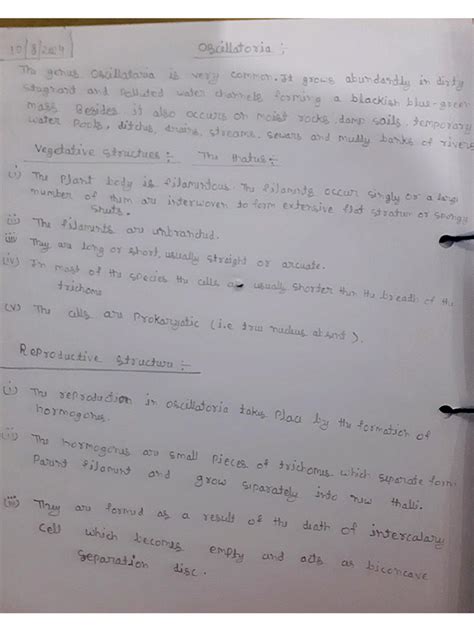 10/8/2024
Oscillatoria :
The genus Oscillataria is very common. It grows abundantly in dirty
stagrant and Polluted water channels forming a blackish blue-green
mass. Besides it also occurs or moist rocks, damp soils, temporary
water Pools, ditches, drains, streams, sewars and muddy banks of rivers
Vegetative structures :- The thatus :-
(i) The Plant body is filamentous. The filaments occur singly or a large
number of them are interwoven to form extensive flat stratum or spongy
sheets.
(ii) The filaments are unbranched.
(iii) They are long or short, usually straight or arcuate.
(iv) In most of the species the cells are usually shorter than the breath of the
trichome
(v) The cells are Prokaryotic (i.e true nucleus absent).
Reproductive structure :-
(i) The reproduction in oscillatoria takes Place by the formation of
hormogones.
(ii) The hormogones are small pieces of trichomes which separate form
Parent filament and grow separately into new thalli.
(iii) They are formed as a result of the death of intercalary
cell which becomes empty and acts as biconcave
separation disc.